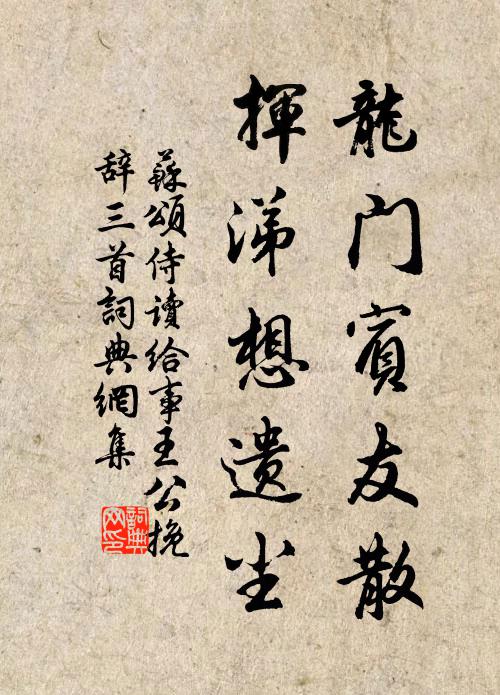 龍门賓友散
揮涕想遗尘
蘇頌侍讀給事王公挽
辞三首詞典網集
詞典
网印